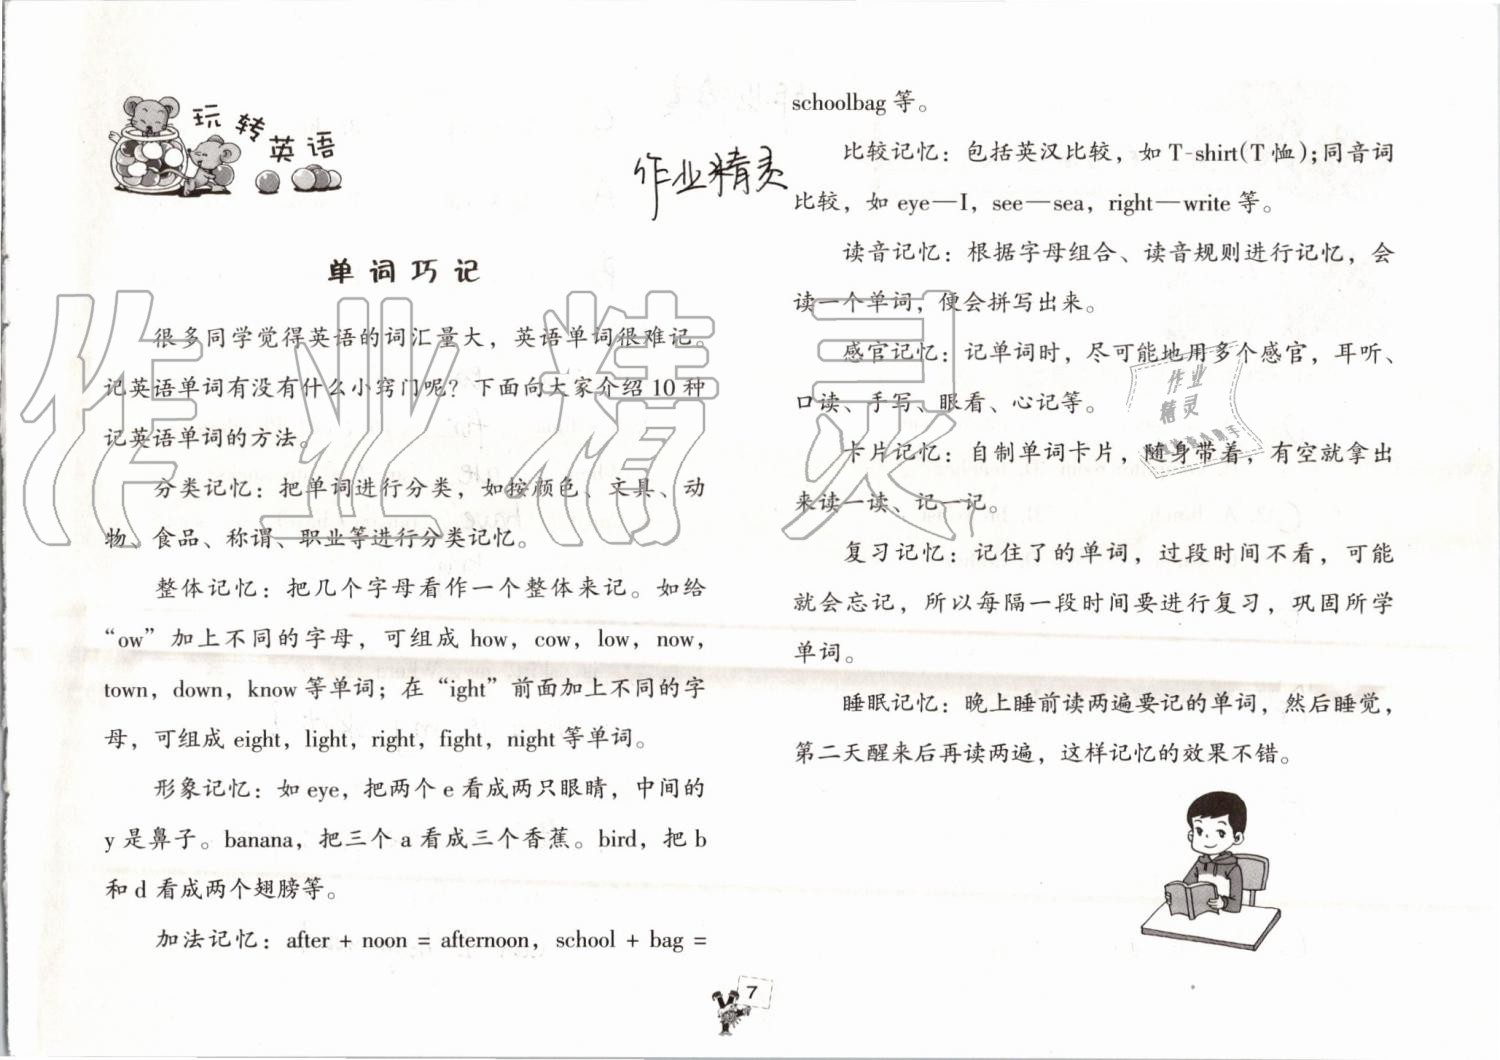 玩转英语
作业精灵
单词巧记
很多同学觉得英语的词汇量大，英语单词很难记。
记英语单词有没有什么小窍门呢？下面向大家介绍 10 种
记英语单词的方法。
分类记忆：把单词进行分类，如按颜色、文具、动
物、食品、称谓、职业等进行分类记忆。
整体记忆：把几个字母看作一个整体来记。如给
“ow”加上不同的字母，可组成 how，cow，low，now，
town，down，know 等单词；在“ight”前面加上不同的字
母，可组成 eight，light，right，fight，night 等单词。
形象记忆：如 eye，把两个 e 看成两只眼睛，中间的
y 是鼻子。banana，把三个 a 看成三个香蕉。bird，把 b
和 d 看成两个翅膀等。
加法记忆：after + noon = afternoon，school + bag =
schoolbag 等。
比较记忆：包括英汉比较，如 T-shirt(T 恤)；同音词
比较，如 eye—I，see—sea，right—write 等。
读音记忆：根据字母组合、读音规则进行记忆，会
读一个单词，便会拼写出来。
感官记忆：记单词时，尽可能地用多个感官，耳听、
口读、手写、眼看、心记等。
卡片记忆：自制单词卡片，随身带着，有空就拿出
来读一读、记一记。
复习记忆：记住了的单词，过段时间不看，可能
就会忘记，所以每隔一段时间要进行复习，巩固所学
单词。
睡眠记忆：晚上睡前读两遍要记的单词，然后睡觉，
第二天醒来后再读两遍，这样记忆的效果不错。
7
作业精灵
作业
精灵